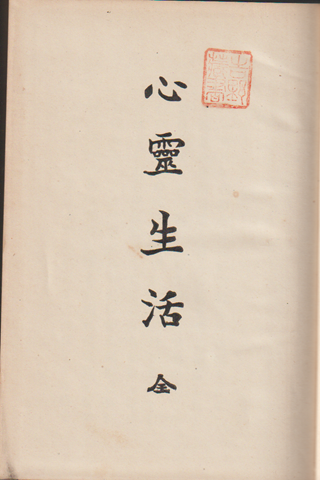 心靈生活
全